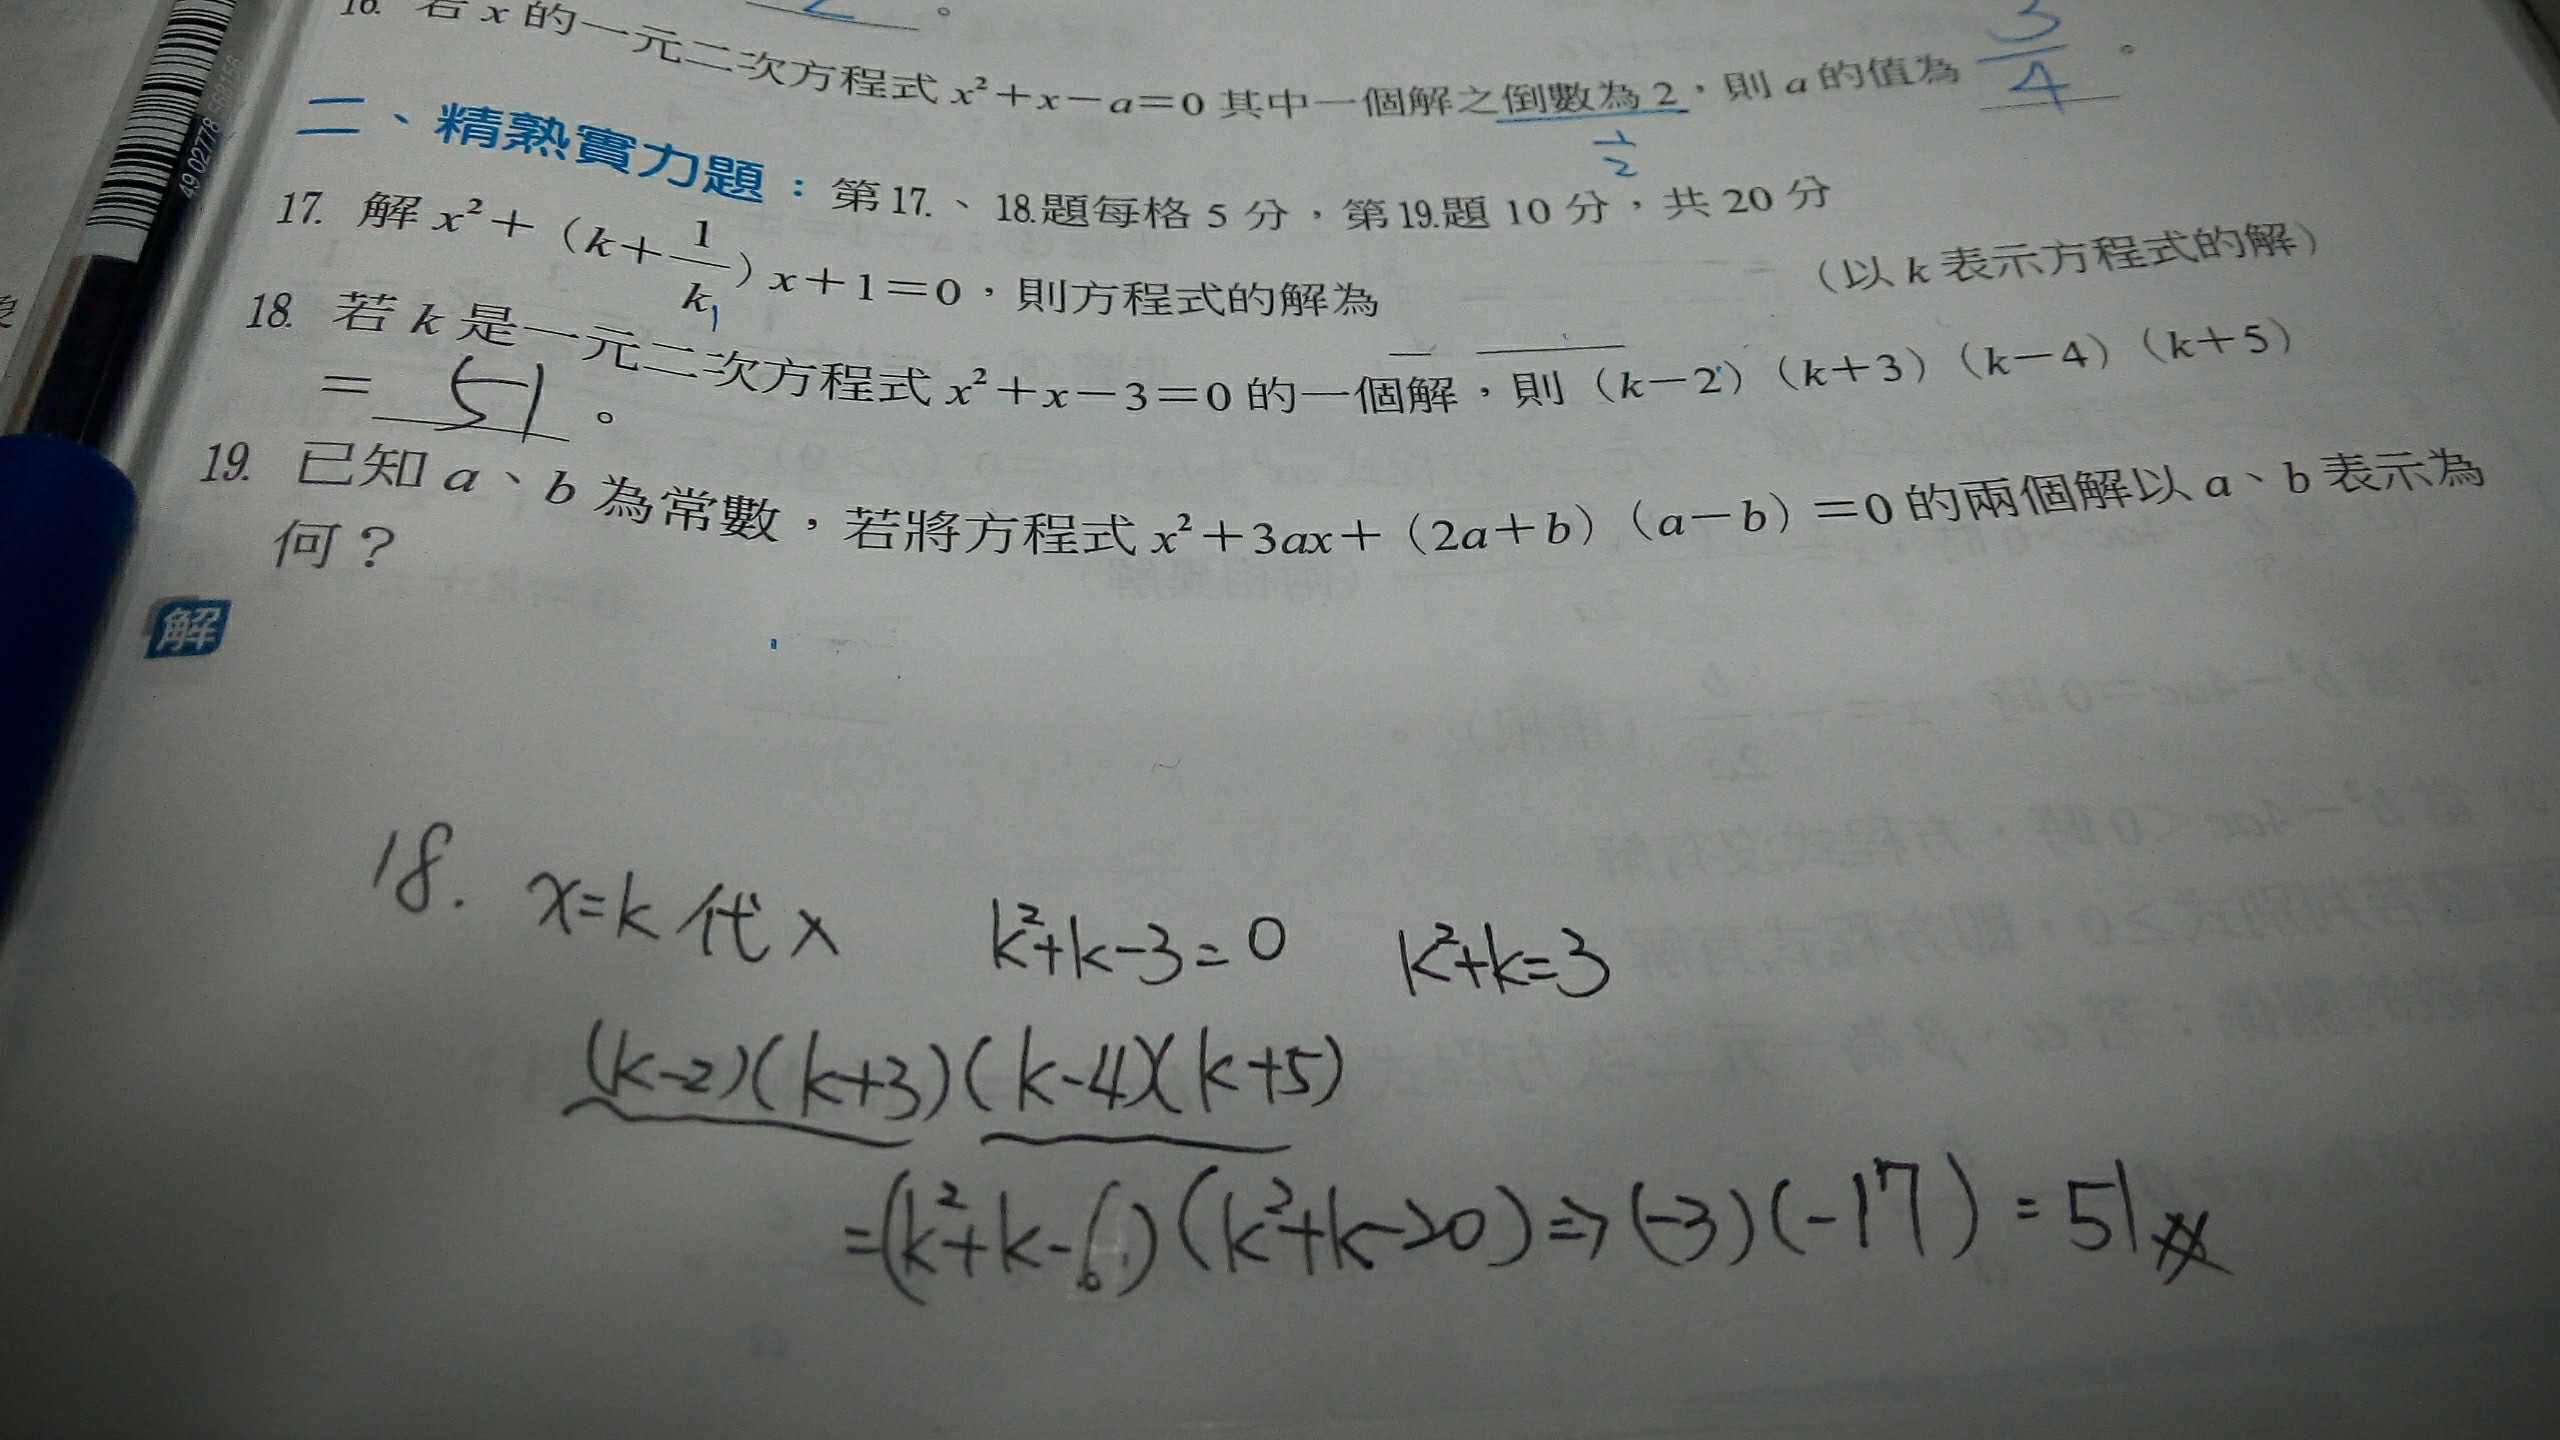 16. 若 x 的一元二次方程式 x²+x−a=0 其中一個解之倒數為 2，則 a 的值為 3/4 。
1/2
二、精熟實力題：第17.、18.題每格 5 分，第19.題 10 分，共 20 分
17. 解 x²+（k+1/k）x+1=0，則方程式的解為
（以 k 表示方程式的解）
18. 若 k 是一元二次方程式 x²+x−3=0 的一個解，則（k−2）（k+3）（k−4）（k+5）
= 51 。
19. 已知 a、b 為常數，若將方程式 x²+3ax+（2a+b）（a−b）=0 的兩個解以 a、b 表示為
何？
解
18. x=k 代 x k²+k-3=0 k²+k=3
(k-2)(k+3)(k-4)(k+5)
=(k²+k-6)(k²+k-20)⇒(-3)(-17)=51
4902778